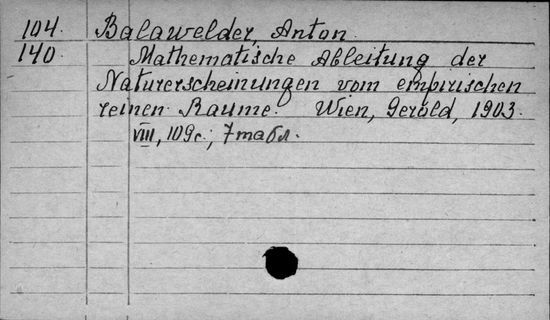 104. Balawelder, Anton.
140 Mathematische Ableitung der
Naturerscheinungen vom empirischen
reinen Raume. Wien, Gerold, 1903.
VIII, 109 с.; 7 табл.